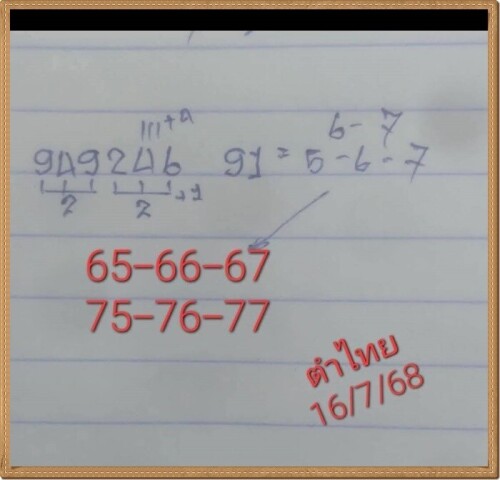 6- 7
949246 91 = 5-6-7
2 2 +1
65-66-67
75-76-77
ตำไทย
16/7/68